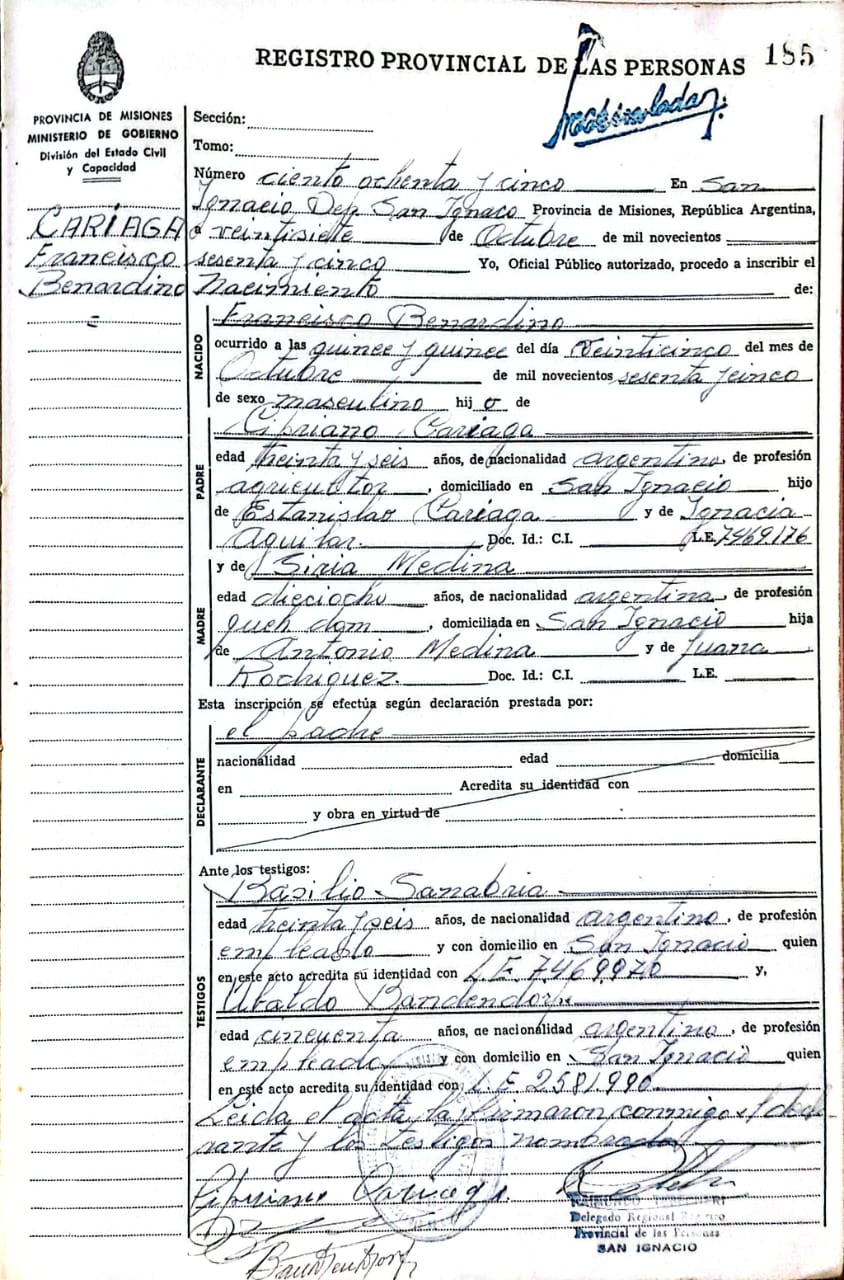 REGISTRO PROVINCIAL DE LAS PERSONAS 185
PROVINCIA DE MISIONES
MINISTERIO DE GOBIERNO
División del Estado Civil
y Capacidad
CARIAGA
Francisco
Benardino
Sección:
Tomo:
Número ciento ochenta y cinco En San
Ignacio Dep. San Ignaco Provincia de Misiones, República Argentina,
a veintisiete de Octubre de mil novecientos
sesenta y cinco Yo, Oficial Público autorizado, procedo a inscribir el
Nacimiento de:
NACIDO
Francisco Benardino
ocurrido a las quince y quince del día veinticinco del mes de
Octubre de mil novecientos sesenta y cinco
de sexo masculino hij o de
PADRE
Cipriano Cariaga
edad treinta y seis años, de nacionalidad argentino, de profesión
agricultor, domiciliado en San Ignacio hijo
de Estanislao Cariaga y de Ignacia
Aguilar. Doc. Id.: C.I. L.E. 7469.176
MADRE
y de Siria Medina
edad dieciocho años, de nacionalidad argentina, de profesión
queh. dom, domiciliada en San Ignacio hija
de Antonio Medina y de Juana
Rodriguez. Doc. Id.: C.I. L.E.
Esta inscripción se efectúa según declaración prestada por:
el padre
DECLARANTE
nacionalidad edad domicilia
en Acredita su identidad con
y obra en virtud de
Ante los testigos:
TESTIGOS
Basilio Sanabria
edad treinta y seis años, de nacionalidad argentino, de profesión
empleado y con domicilio en San Ignacio quien
en este acto acredita su identidad con L.E. 7469970 y,
Ubaldo Bandendorf
edad cincuenta años, de nacionalidad argentino, de profesión
empleado y con domicilio en San Ignacio quien
en este acto acredita su identidad con L.E. 2581.990
Leida el acta, la firmaron conmigo el decla
rante y los testigos nombrados
Cipriano Cariaga.
Delegado Regional Registro
Provincial de las Personas
SAN IGNACIO
Bandendorf